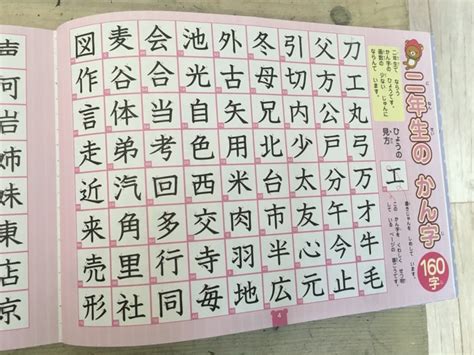 二年生の かん字
160字
二年生で ならう
かん字の ひょうです。
画数の 少ない じゅんに
ならんで います。
ひょうの
見方
工
刀工丸弓万才止毛
父方公分切今午牛
引戸内少太友心元
冬母兄北台市半広
外古矢用米肉羽地
池光自西色行寺毎
会合当考回多交同
麦谷体弟汽角里社
図作言走近来売形
4
声何岩姉妹東店京